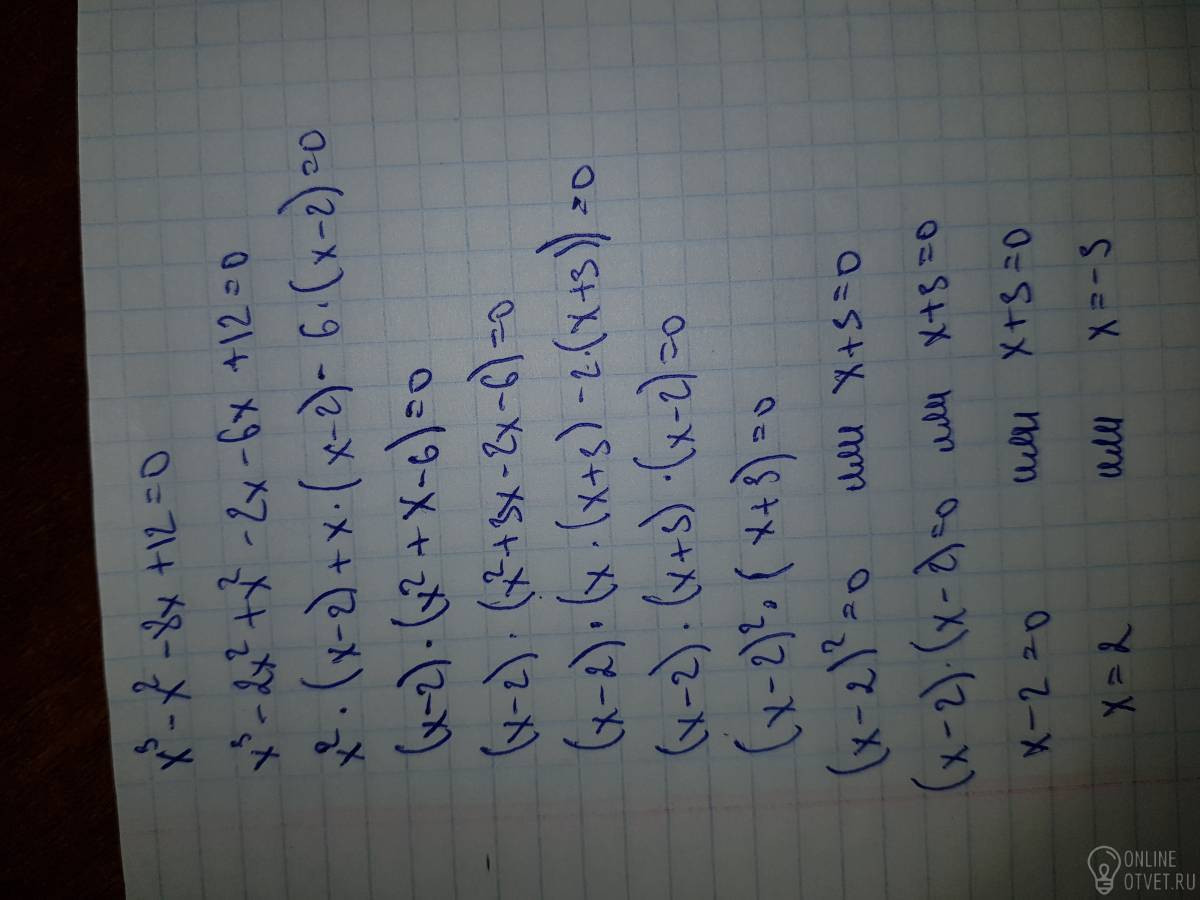 x³-x²-8x+12=0
x³-2x²+x²-2x-6x+12=0
x²·(x-2)+x·(x-2)-6·(x-2)=0
(x-2)·(x²+x-6)=0
(x-2)·(x²+3x-2x-6)=0
(x-2)·(x·(x+3)-2·(x+3))=0
(x-2)·(x+3)·(x-2)=0
(x-2)²·(x+3)=0
(x-2)²=0 или x+3=0
(x-2)·(x-2)=0 или x+3=0
x-2=0 или x+3=0
x=2 или x=-3
ONLINE
OTVET.RU